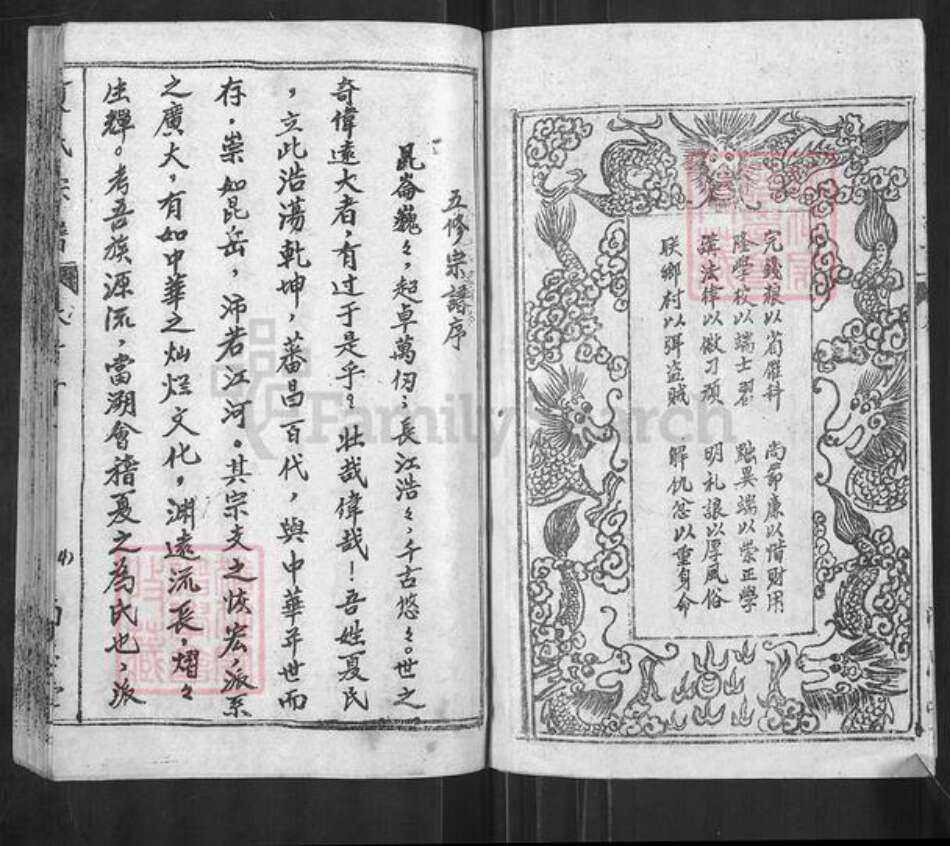 完錢粮以省催科　尚節康以惜財用
隆學校以端士習　黜異端以崇正學
講法律以儆刁頑　明礼讓以厚風俗
联鄉村以弭盗賊　解仇忿以重身命
五修宗譜序
昆崙巍々，起卓萬仭；長江浩々，千古悠々。世之
奇偉遠大者，有过于是乎？壮哉偉哉！吾姓夏氏
，立此浩蕩乾坤，蕃昌百代，與中華并世而
存．崇如昆岳，沛若江河。其宗支之恢宏，派系
之廣大，有如中華之灿烂文化，渊遠流長，熠々
生輝。考吾族源流，當溯會稽夏之為氏也，派
夏氏宗譜
FamilySearch